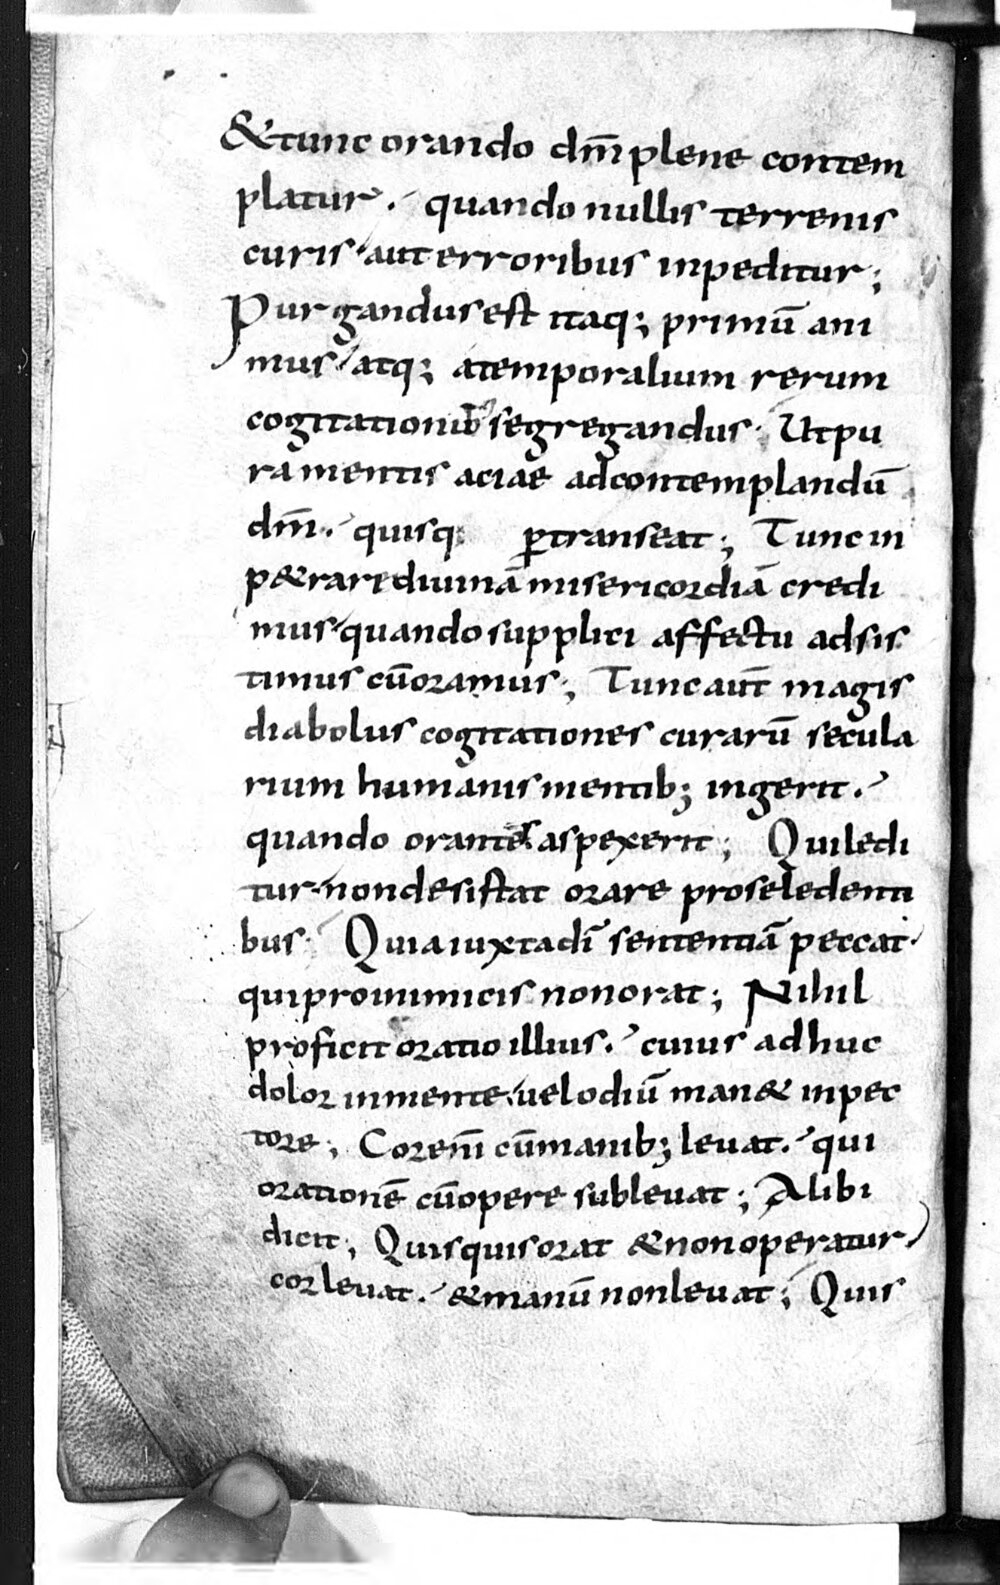 &tunc orando dm̅ plene contem
platur. quando nullis terrenis
curis aut erroribus inpeditur;
Purgandus est itaq; primū ani
mus atq; atemporalium rerum
cogitationib; segregandus. Ut pu
ra mentis aciae adcontemplandū
dm̅. quisq; p̱transeat; Tunc in
p&rare diuinā misericordiā credi
mus quando supplici affectu adsis
timus cū oramus; Tunc aūt magis
diabolus cogitationes curarū secula
rium humanis mentib; ingerit.
quando orantes aspexerit; Qui ledi
tur non desistat orare prose ledenti
bus. Quia iuxta dn̅i sententiā peccat
qui pro inimicis non orat; Nihil
proficit oratio illius. cuius adhuc
dolor inmente. uel odiū man& inpec
tore; Cor enī cū manib; leuat. qui
orationē cū opere subleuat; Alibi
dicit; Quisquis orat & non operatur
cor leuat. & manū non leuat; Quis